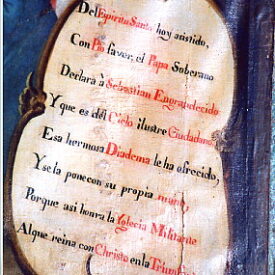 Del Espiritu Santo hoy asistido,
Con Pio favor, el Papa Soberano
Declara à Sebastian Engrandecido
Y que es del Cielo ilustre Ciudadano
Esa hermosa Diadema le ha ofrecido,
Y se la pone con su propia mano
Porque asi honra la Yglecia Militante
Al que reina con Christo en la